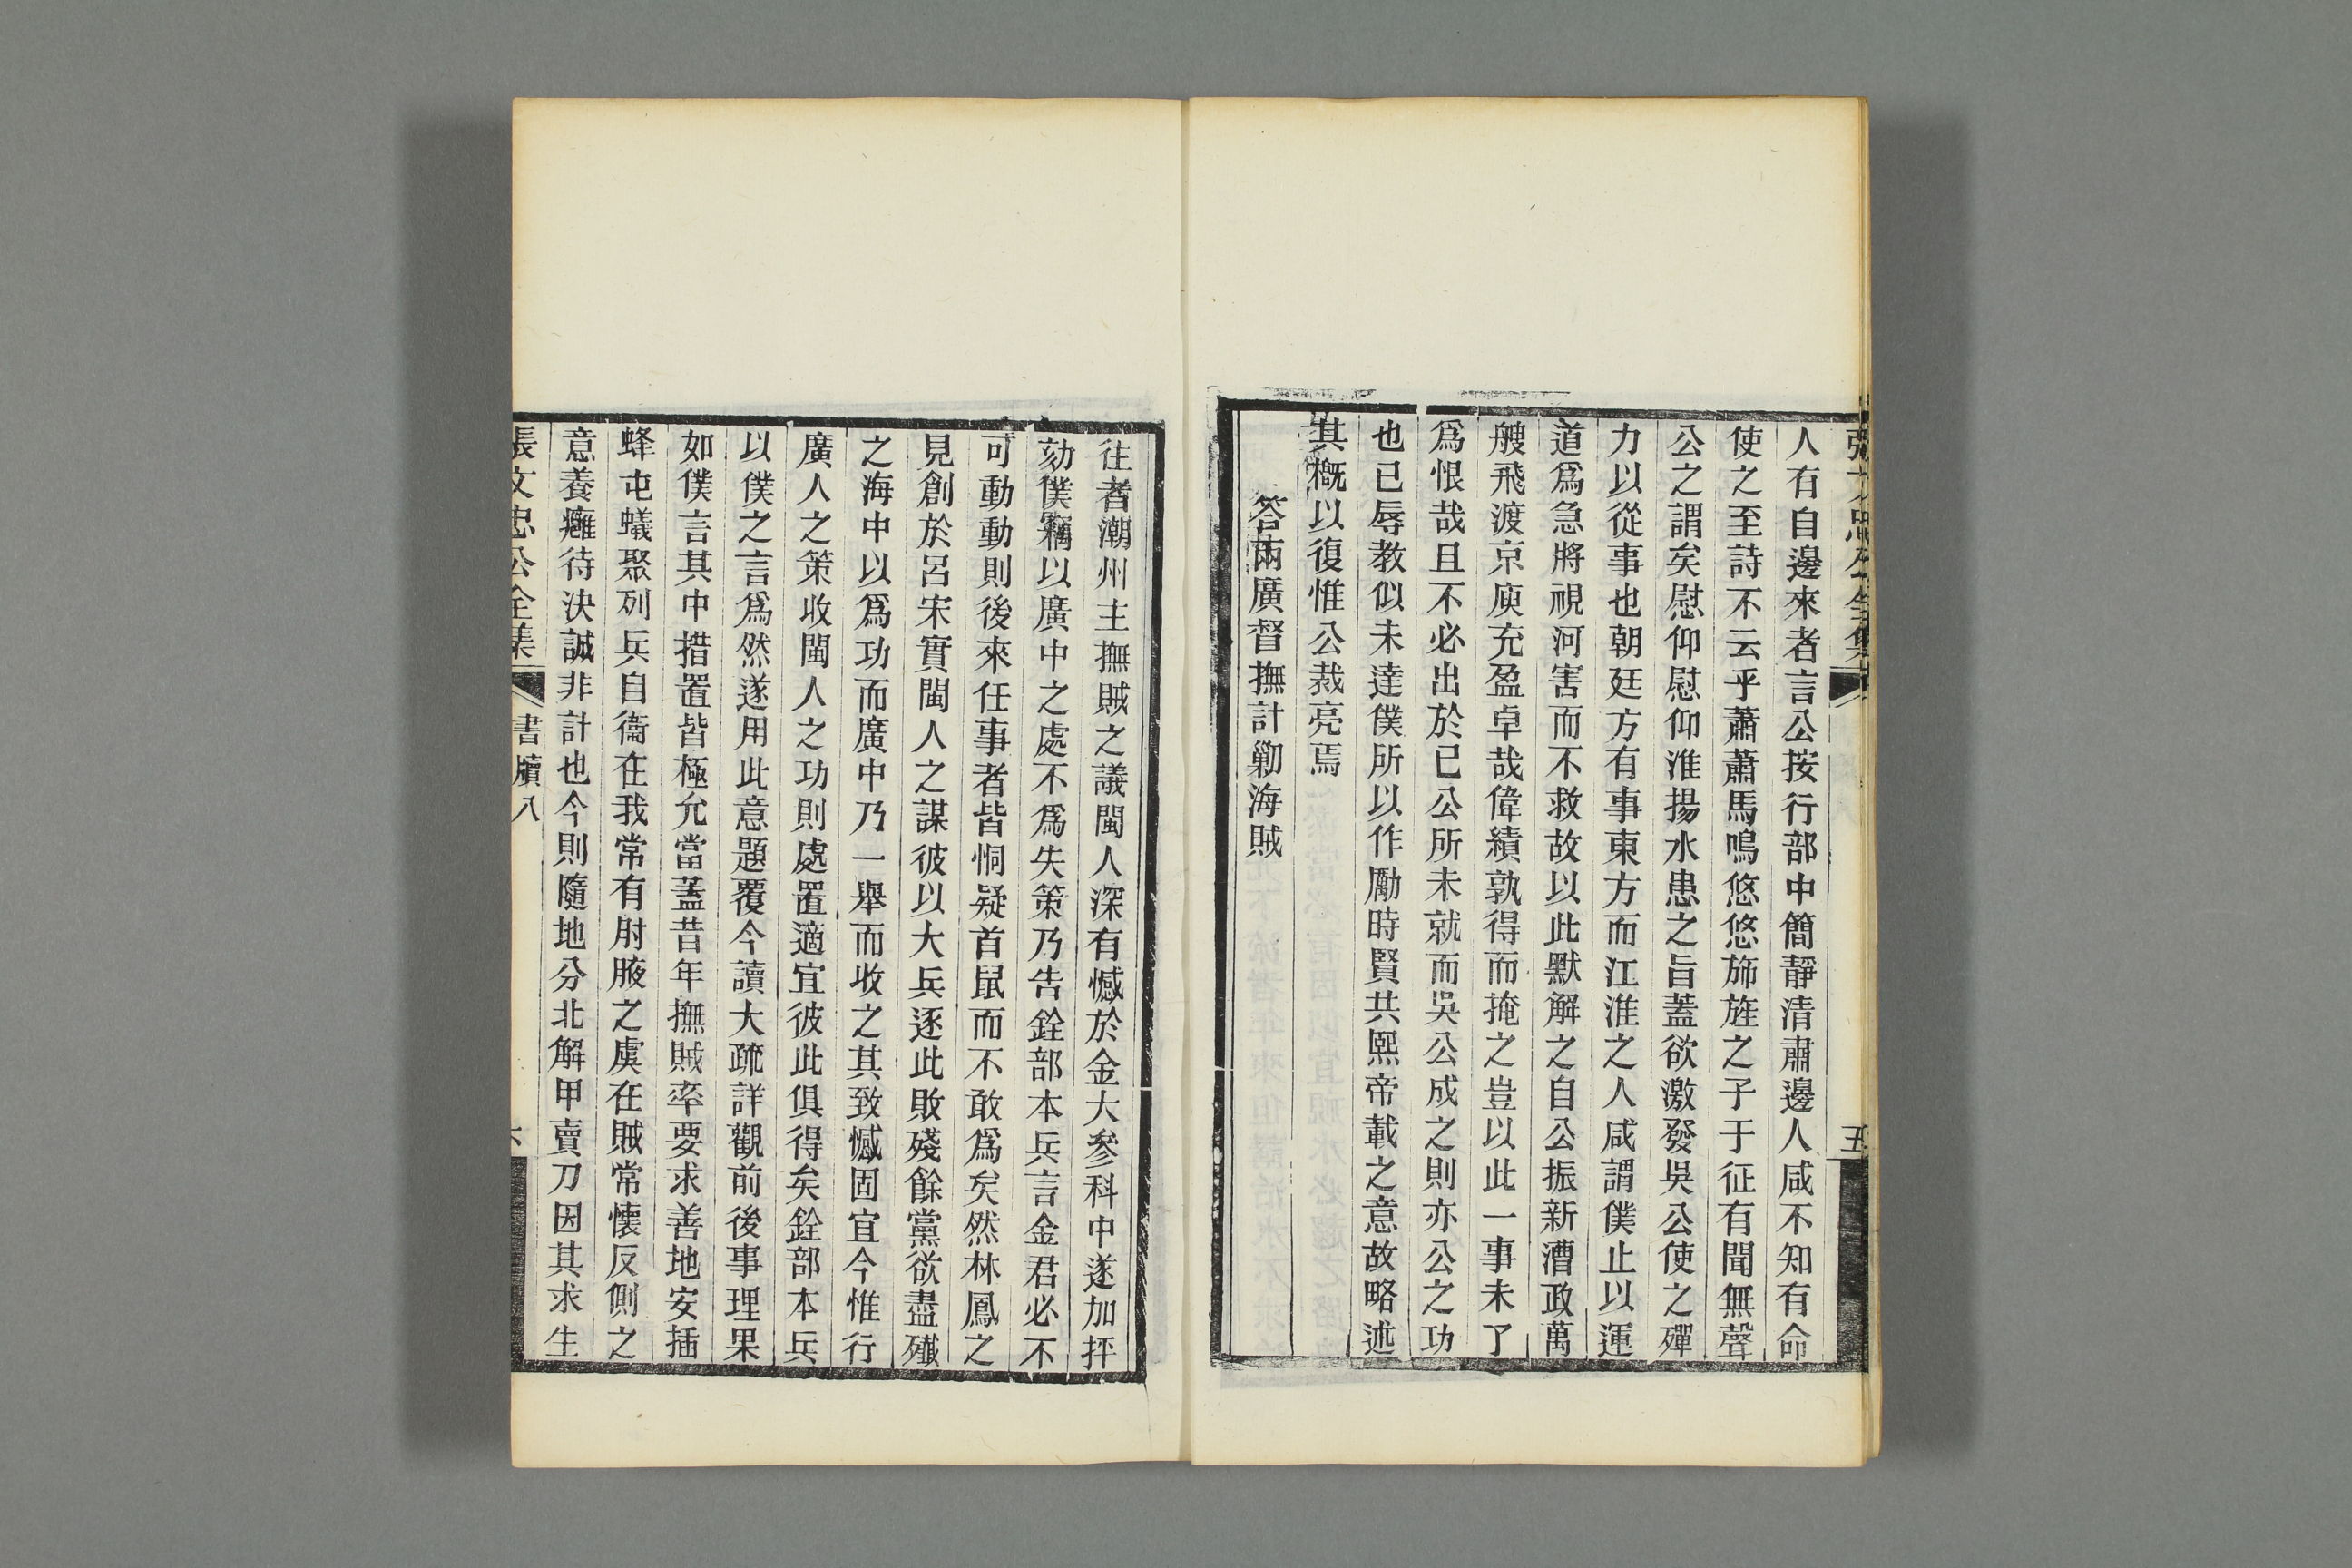 人有自邊來者言公按行部中簡靜清肅邊人咸不知有命
使之至詩不云乎蕭蕭馬鳴悠悠旆旌之子于征有聞無聲
公之謂矣慰仰慰仰淮揚水患之旨蓋欲激發吳公使之殫
力以從事也朝廷方有事東方而江淮之人咸謂僕止以運
道爲急將視河害而不救故以此默解之自公振新漕政萬
艘飛渡京庾充盈卓哉偉績孰得而掩之豈以此一事未了
爲恨哉且不必出於已公所未就而吳公成之則亦公之功
也已辱教似未達僕所以作勵時賢共熙帝載之意故略述
其概以復惟公裁亮焉
答兩廣督撫計勦海賊
往者潮州主撫賊之議閩人深有憾於金大參科中遂加抨
劾僕竊以廣中之處不爲失策乃告銓部本兵言金君必不
可動動則後來任事者皆恫疑首鼠而不敢爲矣然林鳳之
見創於呂宋實閩人之謀彼以大兵逐此敗殘餘黨欲盡殲
之海中以爲功而廣中乃一舉而收之其致憾固宜今惟行
廣人之策收閩人之功則處置適宜彼此俱得矣銓部本兵
以僕之言爲然遂用此意題覆今讀大疏詳觀前後事理果
如僕言其中措置皆極允當蓋昔年撫賊率要求善地安插
蜂屯蟻聚列兵自衞在我常有肘腋之虞在賊常懷反側之
意養癰待決誠非計也今則隨地分北解甲賣刀因其求生
張文忠公全集
書牘八
六
張文忠公全集
五